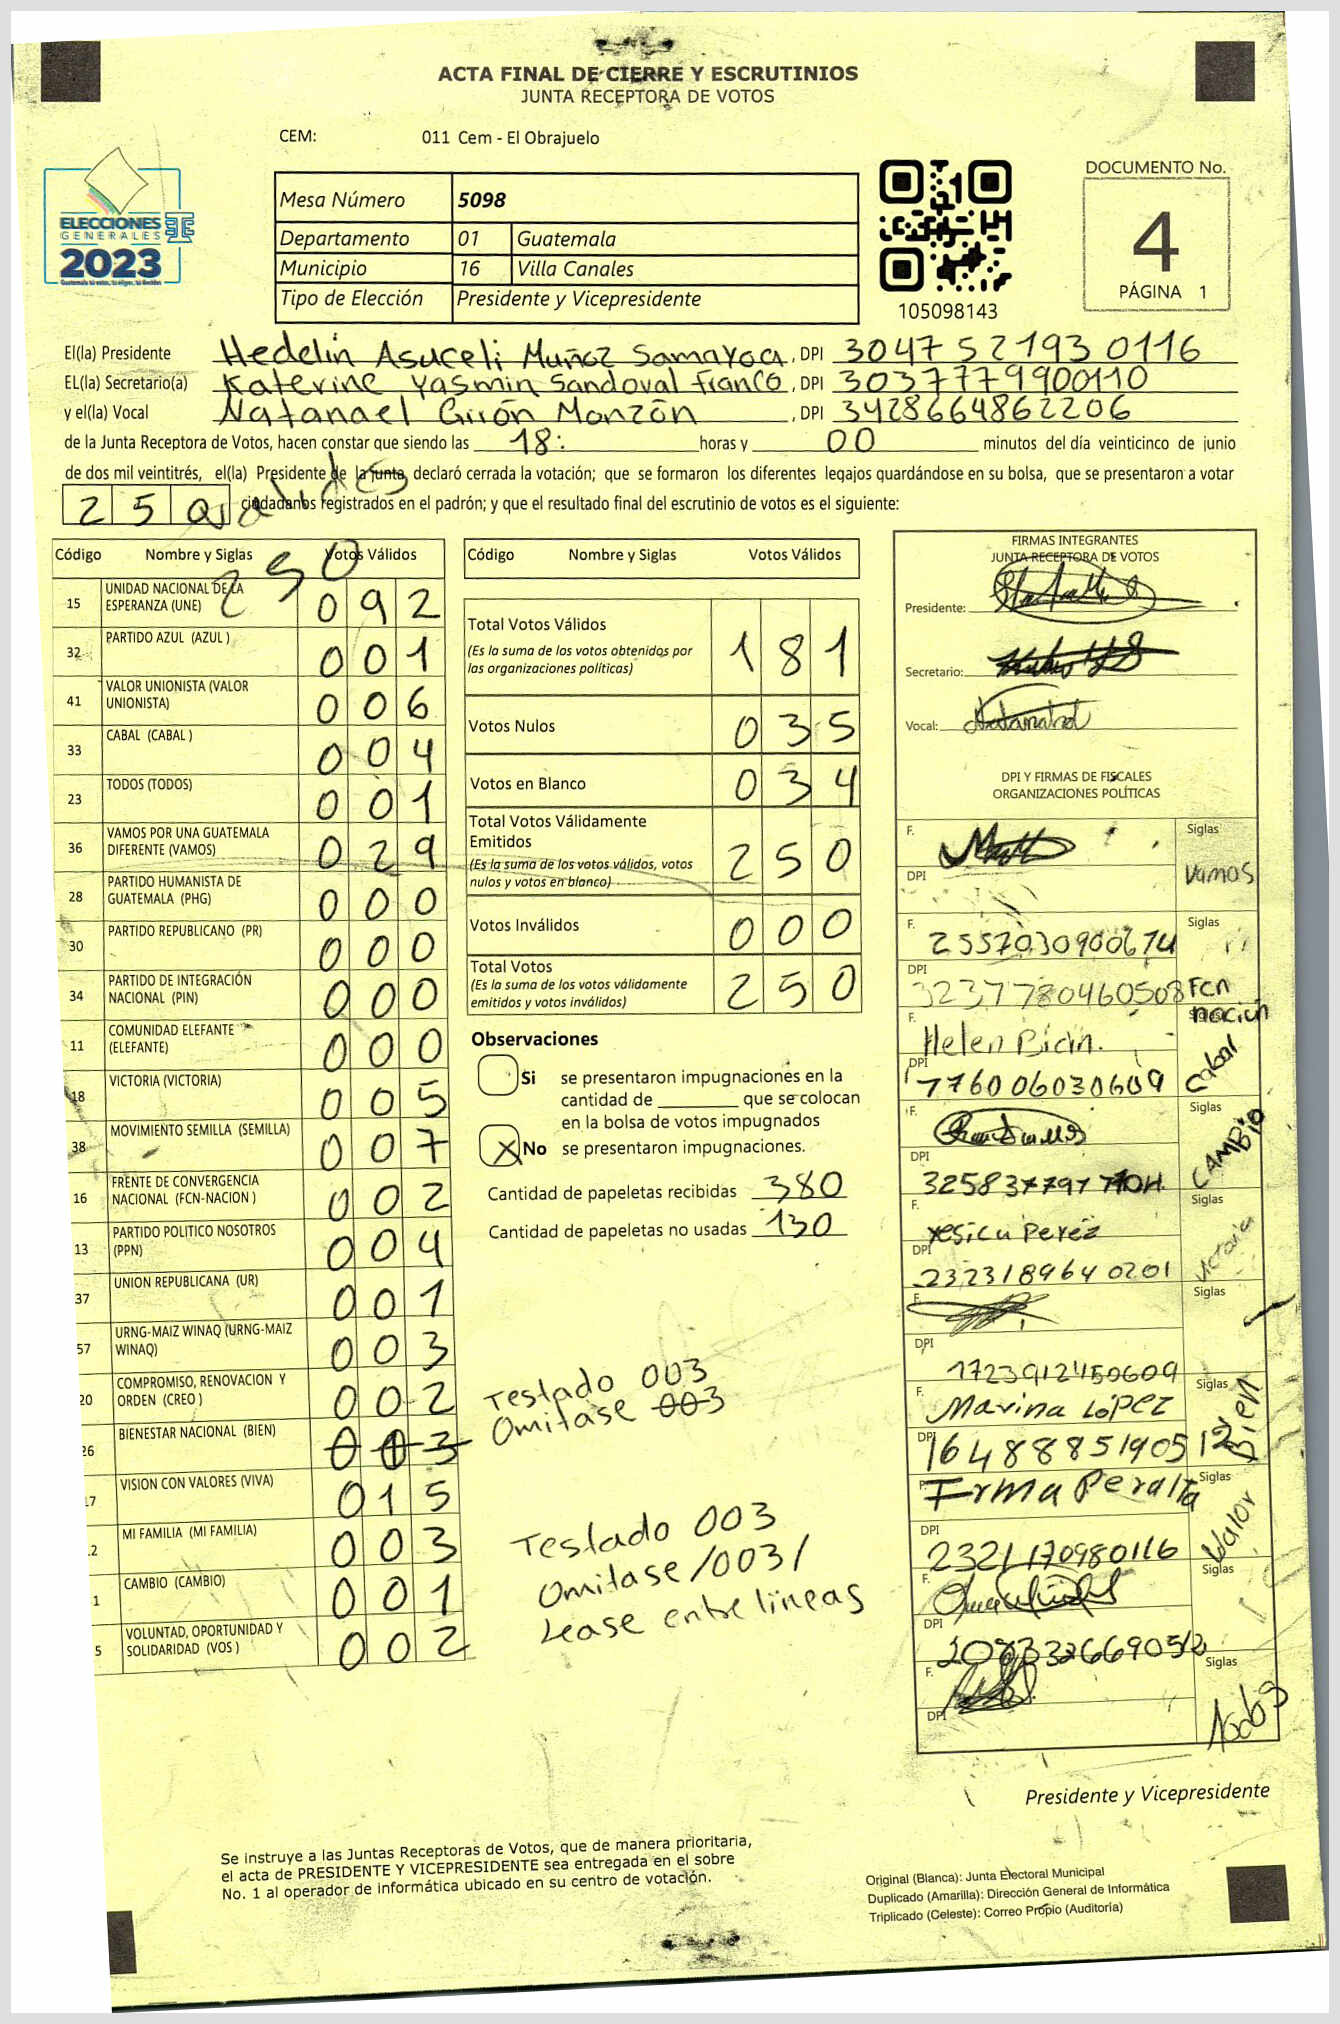 ACTA FINAL DE CIERRE Y ESCRUTINIOS
JUNTA RECEPTORA DE VOTOS
CEM: 011 Cem - El Obrajuelo
DOCUMENTO No.
4
PÁGINA 1
ELECCIONES
GENERALES
2023
Mesa Número 5098
Departamento 01 Guatemala
Municipio 16 Villa Canales
Tipo de Elección Presidente y Vicepresidente
105098143
El(la) Presidente Hedelin Asuceli Muñoz Samayoa, DPI 3047 52193 0116
EL(la) Secretario(a) Katerine Yasmin Sandoval Franco, DPI 3037779900110
y el(la) Vocal Natanael Girón Monzón, DPI 3428664862206
de la Junta Receptora de Votos, hacen constar que siendo las 18: horas y 00 minutos del día veinticinco de junio
de dos mil veintitrés, el(la) Presidente de la junta declaró cerrada la votación; que se formaron los diferentes legajos quardándose en su bolsa, que se presentaron a votar
250 ciudadanos registrados en el padrón; y que el resultado final del escrutinio de votos es el siguiente:
250
Código Nombre y Siglas Votos Válidos
15 UNIDAD NACIONAL DE LA ESPERANZA (UNE) 092
32 PARTIDO AZUL (AZUL ) 001
41 VALOR UNIONISTA (VALOR UNIONISTA) 006
33 CABAL (CABAL ) 004
23 TODOS (TODOS) 001
36 VAMOS POR UNA GUATEMALA DIFERENTE (VAMOS) 029
28 PARTIDO HUMANISTA DE GUATEMALA (PHG) 000
30 PARTIDO REPUBLICANO (PR) 000
34 PARTIDO DE INTEGRACIÓN NACIONAL (PIN) 000
11 COMUNIDAD ELEFANTE (ELEFANTE) 000
18 VICTORIA (VICTORIA) 005
38 MOVIMIENTO SEMILLA (SEMILLA) 007
16 FRENTE DE CONVERGENCIA NACIONAL (FCN-NACION ) 002
13 PARTIDO POLITICO NOSOTROS (PPN) 004
37 UNION REPUBLICANA (UR) 001
57 URNG-MAIZ WINAQ (URNG-MAIZ WINAQ) 003
20 COMPROMISO, RENOVACION Y ORDEN (CREO ) 002
26 BIENESTAR NACIONAL (BIEN) 003
17 VISION CON VALORES (VIVA) 015
2 MI FAMILIA (MI FAMILIA) 003
1 CAMBIO (CAMBIO) 001
5 VOLUNTAD, OPORTUNIDAD Y SOLIDARIDAD (VOS ) 002
Código Nombre y Siglas Votos Válidos
Total Votos Válidos 181
(Es la suma de los votos obtenidos por
las organizaciones políticas)
Votos Nulos 035
Votos en Blanco 034
Total Votos Válidamente
Emitidos 250
(Es la suma de los votos válidos, votos
nulos y votos en blanco)
Votos Inválidos 000
Total Votos 250
(Es la suma de los votos válidamente
emitidos y votos inválidos)
Observaciones
Si se presentaron impugnaciones en la
cantidad de ________ que se colocan
en la bolsa de votos impugnados
X No se presentaron impugnaciones.
Cantidad de papeletas recibidas 380
Cantidad de papeletas no usadas 130
Testado 003
Omitase 003
Testado 003
Omitase /003/
Lease entre lineas
FIRMAS INTEGRANTES
JUNTA RECEPTORA DE VOTOS
Presidente:
Secretario:
Vocal:
DPI Y FIRMAS DE FISCALES
ORGANIZACIONES POLÍTICAS
F. Siglas
DPI Vamos
F. 2557030900674 Siglas
DPI 3237780460508 Fcn nación
F. Helen Siglas
DPI 1776006030609 Cabal
F. Siglas
DPI CAMBIO
F. Yesica Perez Siglas
DPI 2323189640201 Victoria
F. Siglas
DPI 1723912450609
F. Marina López Siglas
DPI 1648885190512 Bien
F. Irma Peralta Siglas
DPI 2321170980116 Valor
F. Siglas
DPI
F. Siglas
DPI
Presidente y Vicepresidente
Se instruye a las Juntas Receptoras de Votos, que de manera prioritaria,
el acta de PRESIDENTE Y VICEPRESIDENTE sea entregada en el sobre
No. 1 al operador de informática ubicado en su centro de votación.
Original (Blanca): Junta Electoral Municipal
Duplicado (Amarilla): Dirección General de Informática
Triplicado (Celeste): Correo Propio (Auditoría)